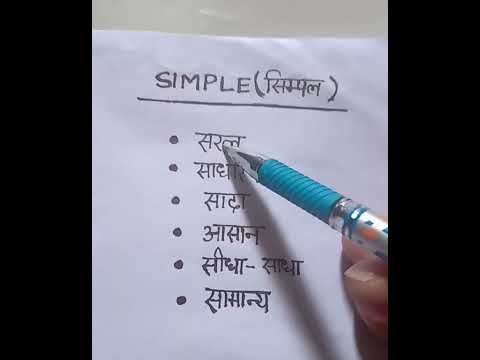 SIMPLE (सिम्पल)
• सरल
•
• सादा
• आसान
• सीधा-साधा
• सामान्य